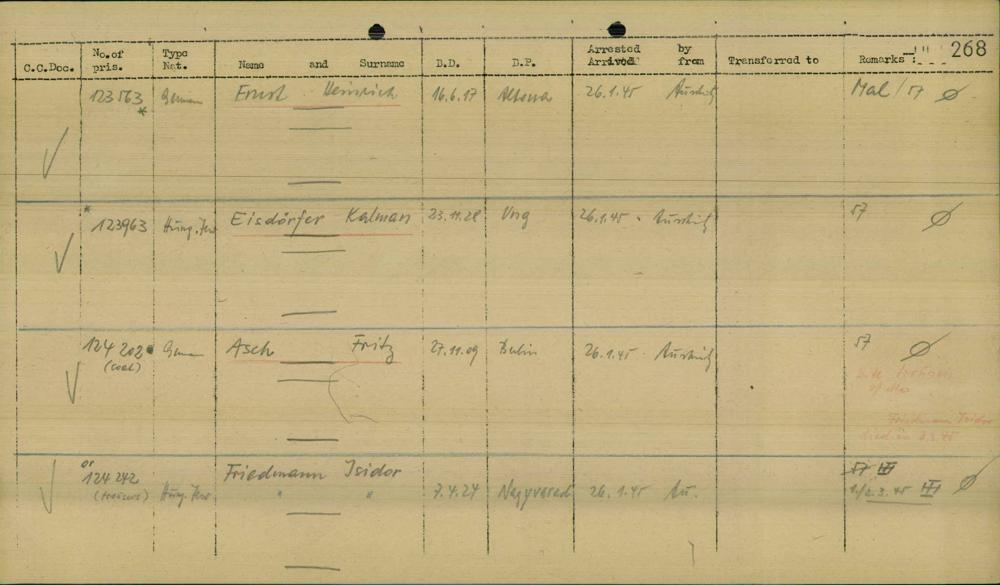 268
C.C.Doc. No. of pris. Type Nat. Name and Surname D.D. D.P. Arrested Arrived by from Transferred to Remarks :
123563 * German Ernst Heinrich 16.6.17 Altona 26.1.45 Auschwitz Mal / 57
* 123963 Hung. Jew Eisdörfer Kalman 23.11.28 Ung 26.1.45 Auschwitz 57
124202 German Asch Fritz 27.11.09 Berlin 26.1.45 Auschwitz 57
(coat)
Friedmann Isidor
died on 2.3.45
or
124242 Friedmann Isidor 57 III
(trousers) Hung. Jew " " 7.4.24 Nagyvarad 26.1.45 Au. 1/2.3.45 III